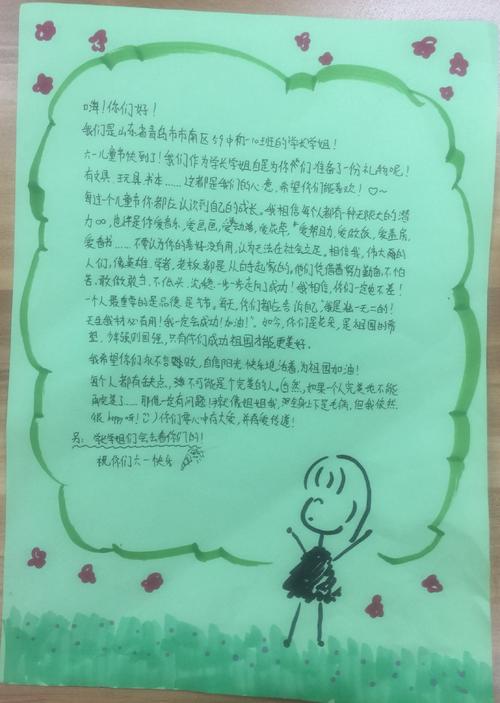 嗨！你们好！
我们是山东省青岛市市南区59中初一10班的学长学姐！
六一儿童节快到了！我们作为学长学姐自是为你们准备了一份礼物呢！
有文具、玩具、书本……这都是我们的心意，希望你们能喜欢！♡~
每过一个儿童节你都在认识到自己的成长。我相信每个人都有一种无限大的潜
力∞，也许是你爱音乐、爱画画、爱动漫、爱花草、爱帮助、爱做饭、爱
爱看书……不要认为你的喜好没有用，认为无法在社会立足。相信我，伟大的
人们，像英雄、学者、老板都是从白手起家的，他们凭借着努力勤奋、不怕
苦、敢做敢当、不低头、沈稳一步一步走向了成功！我相信，你们一定也不差！
一个人最重要的是品德，是节省。每天，你们都在告诉自己，"我是独一无二的！
天生我材必有用！我一定会成功！加油！"。如今，你们是花朵，是祖国的希
望，少年强则国强，只有你们成功祖国才能更美好。
我希望你们永不言败，自信阳光、快乐地活着，为祖国加油！
每个人都有缺点，谁不可能是个完美的人。自然，如果一个人完美地不能
再完美了……那他一定有问题！就像姐姐我，浑全身上下是毛病，但我依然
很happy呀！:）你们要心中有大爱，并将爱传递！
另：学长学姐们会去看你们的！
祝你们六一快乐